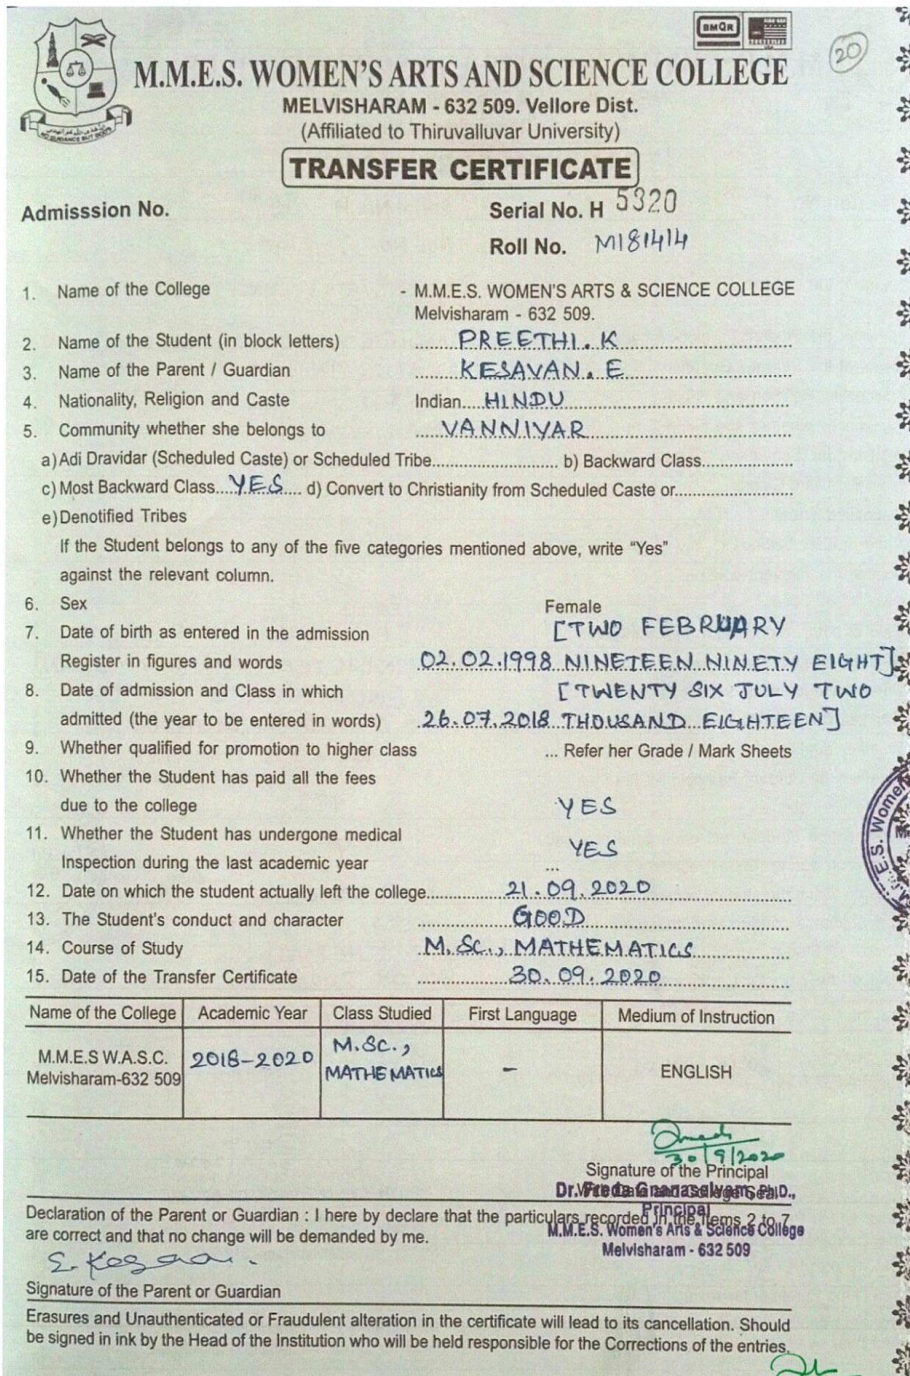 BMQR
20
M.M.E.S. WOMEN'S ARTS AND SCIENCE COLLEGE
MELVISHARAM - 632 509. Vellore Dist.
(Affiliated to Thiruvalluvar University)
TRANSFER CERTIFICATE
Admisssion No.
Serial No. H 5320
Roll No. M181414
1. Name of the College - M.M.E.S. WOMEN'S ARTS & SCIENCE COLLEGE
Melvisharam - 632 509.
2. Name of the Student (in block letters) PREETHI. K
3. Name of the Parent / Guardian KESAVAN. E
4. Nationality, Religion and Caste Indian HINDU
5. Community whether she belongs to VANNIYAR
a) Adi Dravidar (Scheduled Caste) or Scheduled Tribe b) Backward Class
c) Most Backward Class YES d) Convert to Christianity from Scheduled Caste or
e) Denotified Tribes
If the Student belongs to any of the five categories mentioned above, write "Yes"
against the relevant column.
6. Sex Female
7. Date of birth as entered in the admission [TWO FEBRUARY
Register in figures and words 02.02.1998 NINETEEN NINETY EIGHT]
8. Date of admission and Class in which [TWENTY SIX JULY TWO
admitted (the year to be entered in words) 26.07.2018 THOUSAND EIGHTEEN]
9. Whether qualified for promotion to higher class ... Refer her Grade / Mark Sheets
10. Whether the Student has paid all the fees
due to the college YES
11. Whether the Student has undergone medical
Inspection during the last academic year ... YES
12. Date on which the student actually left the college 21.09.2020
13. The Student's conduct and character GOOD
14. Course of Study M.Sc., MATHEMATICS
15. Date of the Transfer Certificate 30.09.2020
Name of the College Academic Year Class Studied First Language Medium of Instruction
M.M.E.S W.A.S.C. 2018-2020 M.Sc., - ENGLISH
Melvisharam-632 509 MATHEMATICS
E.S. Women
30/9/2020
Signature of the Principal
Dr. Freda Gnanaselvam, Ph.D.,
Principal
M.M.E.S. Women's Arts & Science College
Melvisharam - 632 509
Declaration of the Parent or Guardian : I here by declare that the particulars recorded in the Items 2 to 7
are correct and that no change will be demanded by me.
Signature of the Parent or Guardian
Erasures and Unauthenticated or Fraudulent alteration in the certificate will lead to its cancellation. Should
be signed in ink by the Head of the Institution who will be held responsible for the Corrections of the entries.